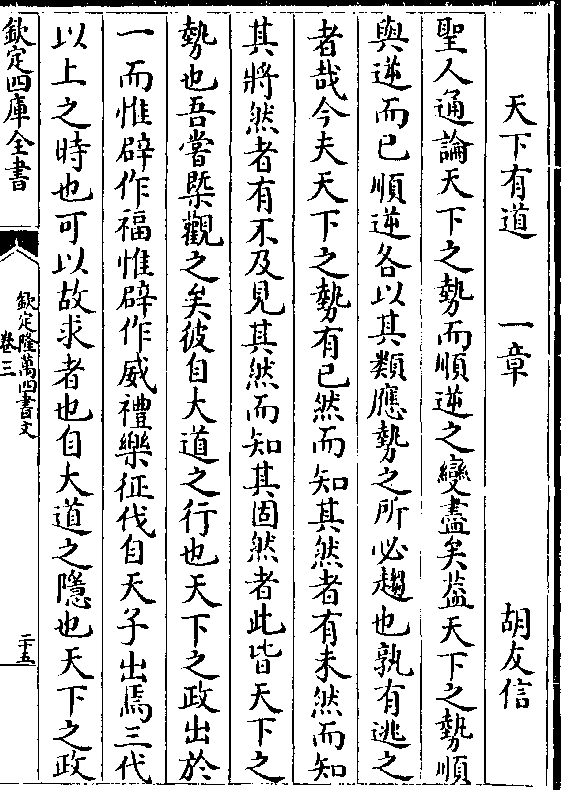 天下有道　一章　胡友信
聖人通論天下之勢而順逆之變盡矣葢天下之勢順
與逆而已順逆各以其類應勢之所必趨也孰有逃之
者哉今夫天下之勢有已然而知其然者有未然而知
其將然者有不及見其然而知其固然者此皆天下之
勢也吾嘗槩觀之矣彼自大道之行也天下之政出於
一而惟辟作福惟辟作威禮樂征伐自天子出焉三代
以上之時也可以故求者也自大道之隱也天下之政
欽定四庫全書
欽定隆萬四書文
卷三
二十五